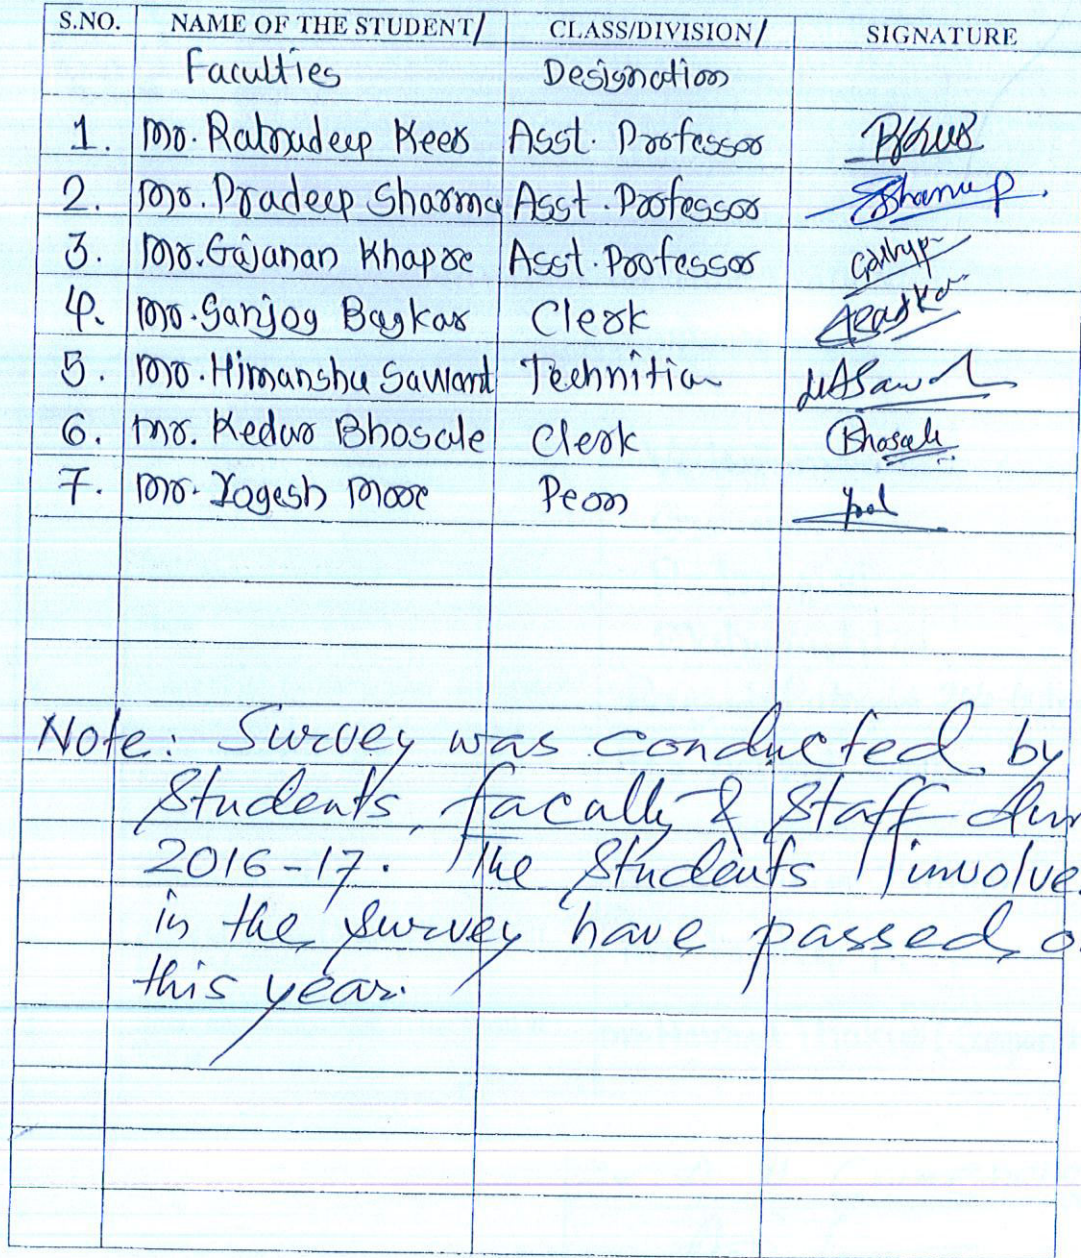 S.NO. NAME OF THE STUDENT/ CLASS/DIVISION/ SIGNATURE
Faculties Designation
1. Mr. Ratnadeep Keer Asst. Professor
2. Mr. Pradeep Sharma Asst. Professor
3. Mr. Gajanan Khapre Asst. Professor
4. Mr. Sanjog Bagkar Clerk
5. Mr. Himanshu Sawant Technitian
6. Mr. Kedar Bhosale Clerk Bhosale
7. Mr. Yogesh More Peon
Note: Survey was conducted by
Students, faculty & Staff
2016-17. The Students involve
in the survey have passed
this year.